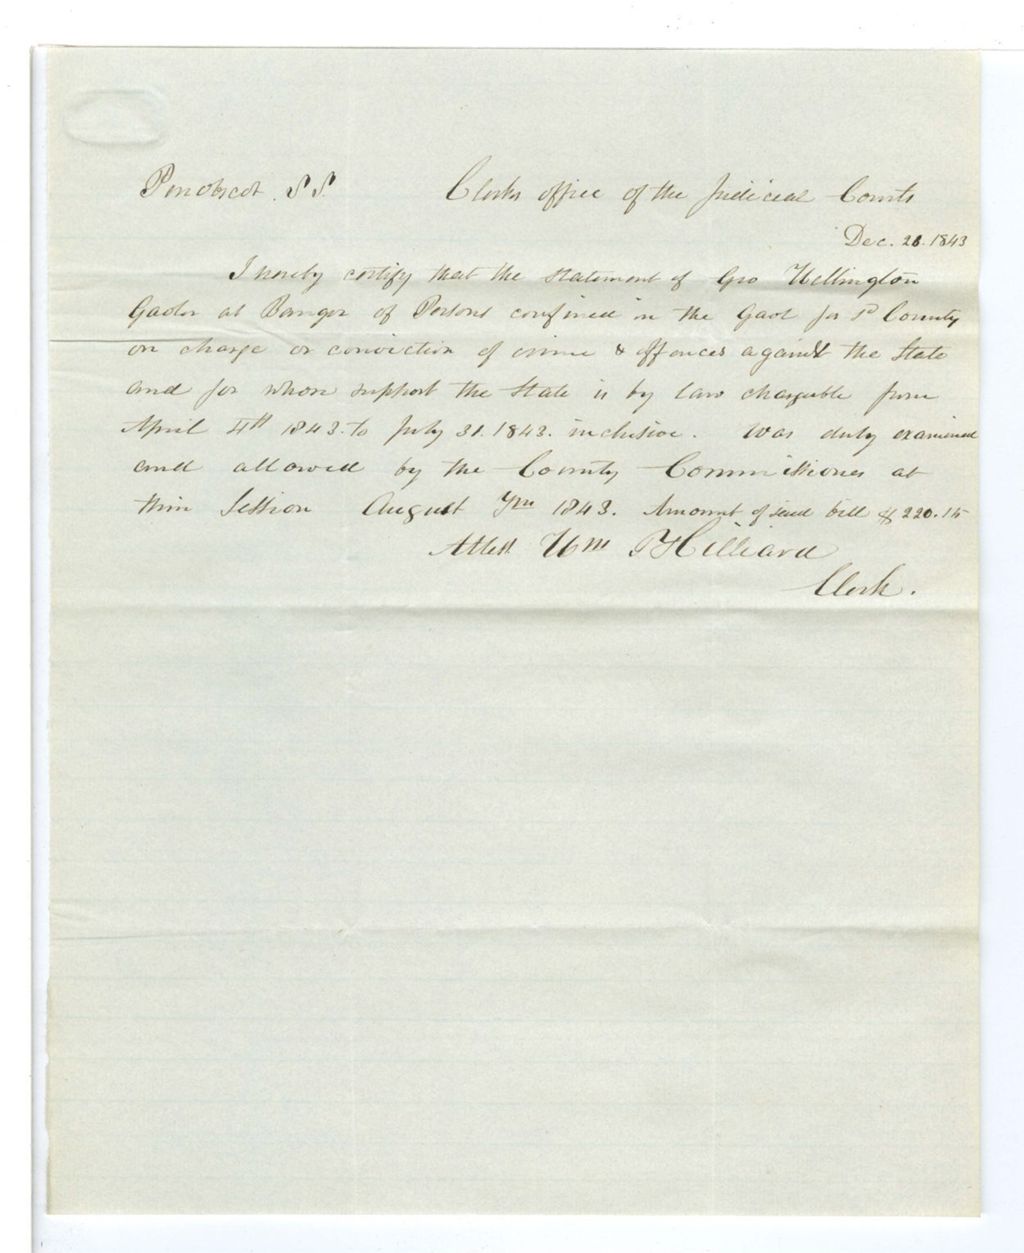 Penobscot. S S. Clerks office of the Judicial Courts
Dec. 28. 1843
I hereby certify that the statement of Geo Wellington
Gaoler at Bangor of Persons confined in the Gaol for sd County
on charge or conviction of crime & offences against the State
and for whose support the State is by law chargeable from
April 4th 1843. to July 31. 1843. inclusive. Was duly examined
and allowed by the County Commissioners at
their Session August 1843. Amount of said bill $220.15
Attest Wm T Hilliard
Clerk.